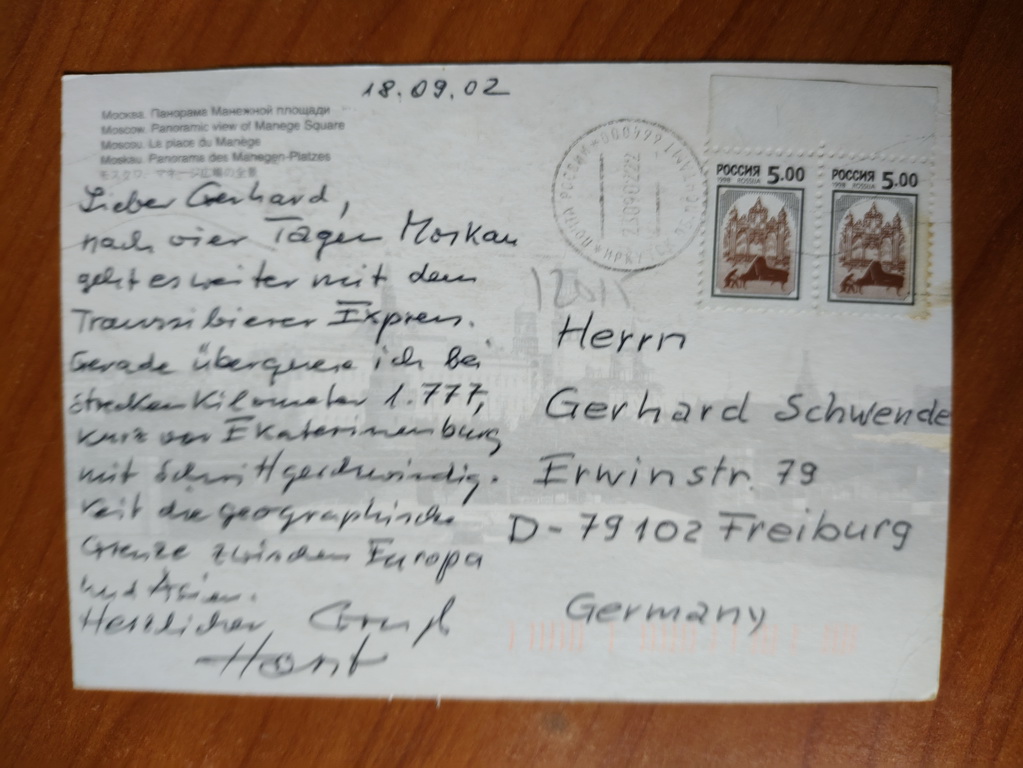 18.09.02
Москва. Панорама Манежной площади
Moscow. Panoramic view of Manege Square
Moscou. La place du Manège
Moskau. Panorama des Manegen-Platzes
モスクワ. マネージ広場の全景
Lieber Gerhard,
nach vier Tagen Moskau
geht es weiter mit dem
Transsibierer Express.
Gerade überquere ich bei
Streckenkilometer 1.777,
kurz vor Ekaterinenburg
mit Schrittgeschwindig-
keit die geographische
Grenze zwischen Europa
und Asien.
Herzlicher Gruß
Horst
ПОЧТА РОССИИ
РОССИЯ 5.00
1998 ROSSIJA
РОССИЯ 5.00
1998 ROSSIJA
Herrn
Gerhard Schwende
Erwinstr. 79
D-79102 Freiburg
Germany